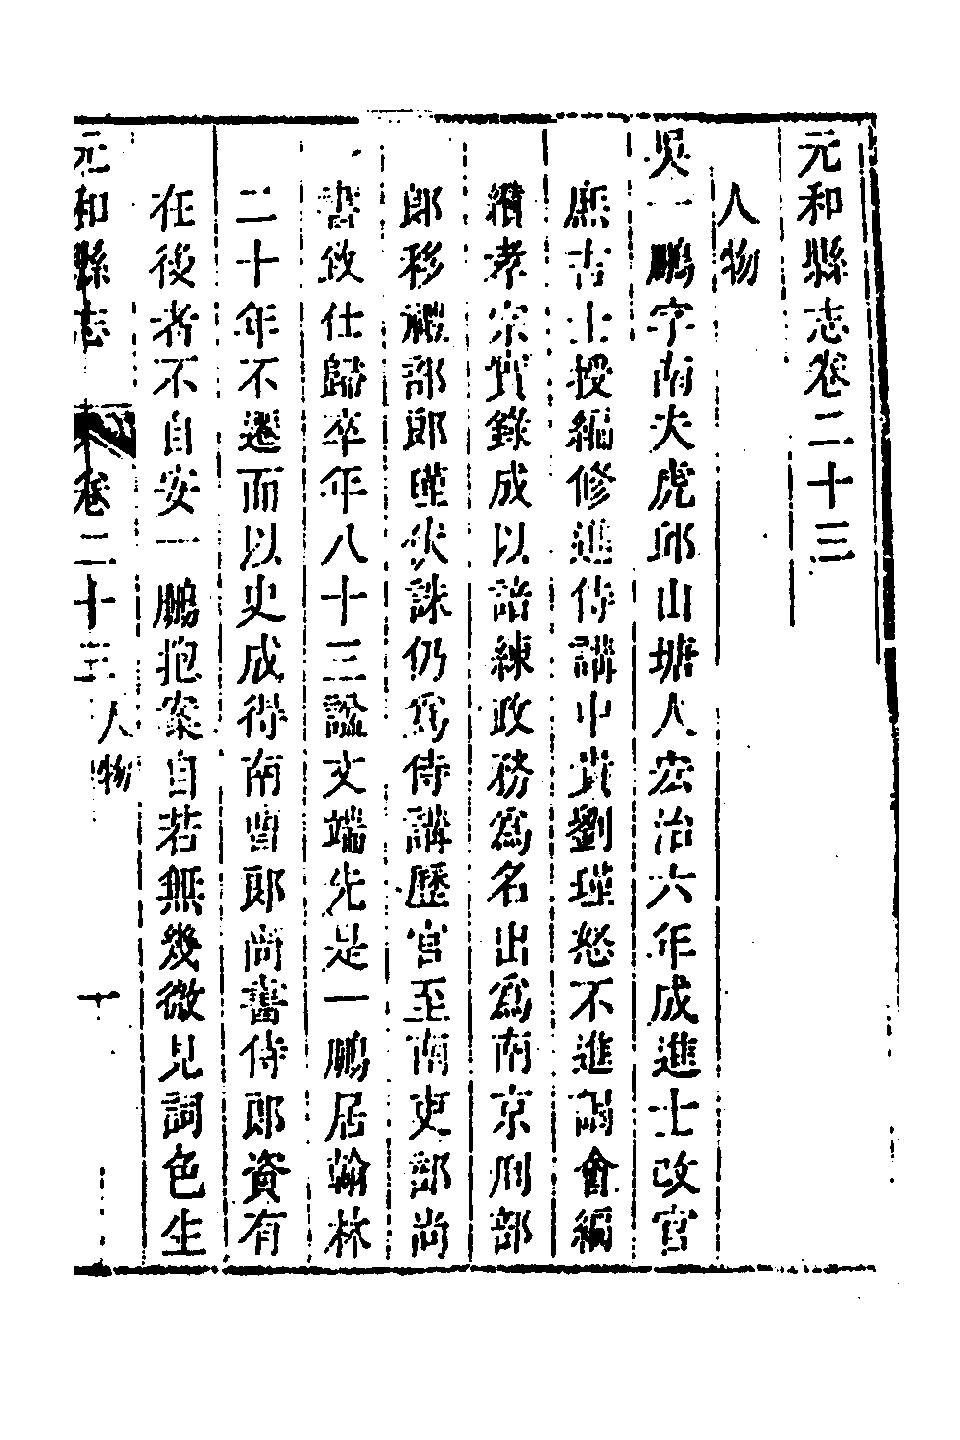 元和縣志卷二十三
人物
吳一鵬字南夫虎邱山塘人宏治六年成進士改官
庶吉士授編修進侍講中貴劉瑾怒不進謁會編
纘孝宗實錄成以諳練政務爲名出爲南京刑部
郎移禮部郎瑾伏誅仍爲侍講歷官至南吏部尚
書致仕歸卒年八十三諡文端先是一鵬居翰林
二十年不遷而以史成得南曹郎尚書侍郎資有
在後者不自安一鵬抱案自若無幾微見詞色生
元和縣志 卷二十三 人物 一